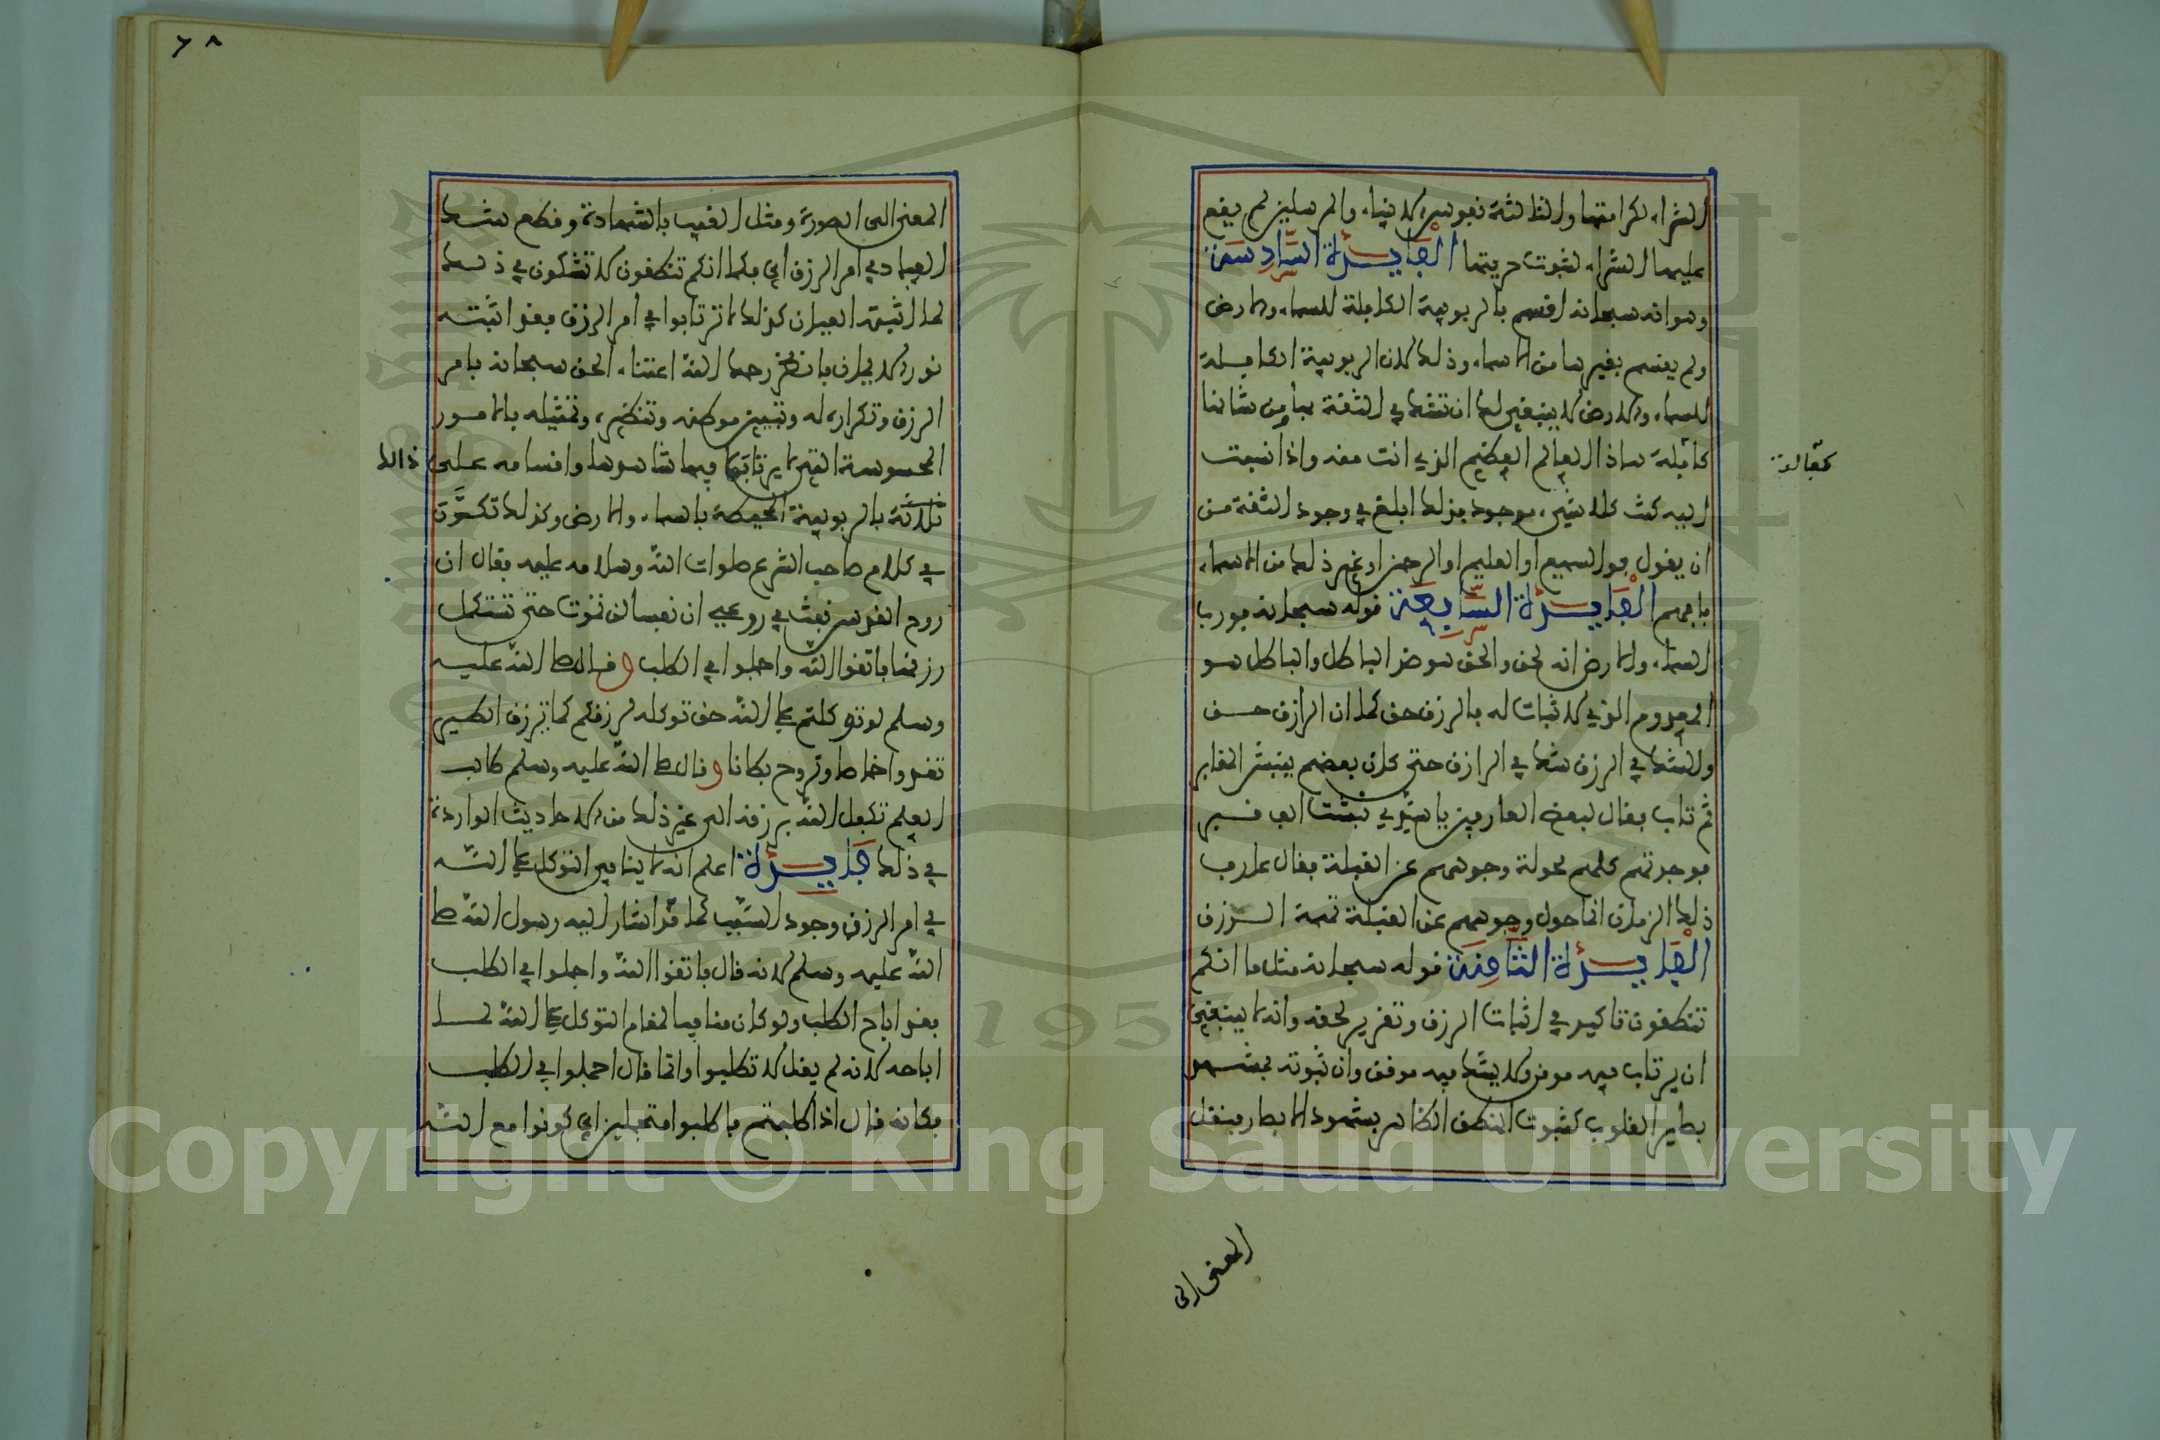 الشراء لكرامتها والثالثة نفوس الانبياء والمرسلين لم يقع
عليها الشراء لثبوت حريتها الفايدة السادسة
وهو انه سبحانه اقسم بالربوبية الكافلة للسماء والارض
ولم يقسم بغيرها من الاسماء وذلك لان الربوبية الكافلة
للسماء والارض لا ينبغي لك ان تشك في الثقة بها من شانها
كافلة هاذا العالم العظيم الذي انت منه واذا نسبت
كفالة
اليه كنت كلا شيء موجود فذلك ابلغ في وجود الثقة من
ان يقول فو السميع او العليم او الرحمن او غير ذلك من الاسماء
فافهم الفايدة السابعة قوله سبحانه فورب
السماء والارض انه لحق والحق هو ضد الباطل والباطل هو
المعدوم الذي لا ثبات له فالرزق حق كما ان الرازق حق
والشك في الرزق شك في الرازق حتى كان بعضهم ينبش المقابر
ثم تاب فقال لبعض العارفين يا سيدي نبشت الف قبر
فوجدتهم كلهم محولة وجوههم عن القبلة فقال عارف
ذلك الزمان انما حول وجوههم عن القبلة تهمة الرزق
الفايدة الثامنة قوله سبحانه مثل ما انكم
تنطقون تاكيد في اثبات الرزق وتقرير لحقه وانه لا ينبغي
ان يرتاب فيه مومن ولا يشك فيه موقن وان ثبوته بمشهد
بصاير القلوب كثبوت المنطق الظاهر بشهود الابصار فنقل
المعنى الى
٦٨
المعنى الى الصورة ومثل الغيب بالشهادة وقطع شك
العباد في امر الرزق اي فكما انكم تنطقون لا تشكون في ذلك
لما اثبته العيان كذلك لا ترتابوا في امر الرزق فقد اثبته
نور الايمان فانظر رحمك الله اعتناء الحق سبحانه بامر
الرزق وتكراره له وتبيين موطنه وتنظيره وتمثيله بالامور
المحسوسة التي لا يرتاب فيها شاهدها واقسامه على ذالك
ثلاثة بالربوبية المحيطة بالسماء والارض وكذلك تكرر
في كلام صاحب الشرع صلوات الله وسلامه عليه فقال ان
روح القدس نفث في روعي ان نفسا لن تموت حتى تستكمل
رزقها فاتقوا الله واجملوا في الطلب وقال صلى الله عليه
وسلم لو توكلتم على الله حق توكله لرزقكم كما يرزق الطير
تغدوا خماصا وتروح بطانا وقال صلى الله عليه وسلم طالب
العلم تكفل الله برزقه الى غير ذلك من الاحاديث الواردة
في ذلك فايدة اعلم انه لا ينافي التوكل على الله
في امر الرزق وجود السبب كما قد اشار اليه رسول الله صلى
الله عليه وسلم لانه قال فاتقوا الله واجملوا في الطلب
فقد اباح الطلب ولو كان منافيا لمقام التوكل على الله لما
اباحه لانه لم يقل لا تطلبوا وانما قال اجملوا في الطلب
فكانه قال اذا طلبتم فاطلبوا مجملين اي كونوا مع الله
Copyright © King Saud University
1957